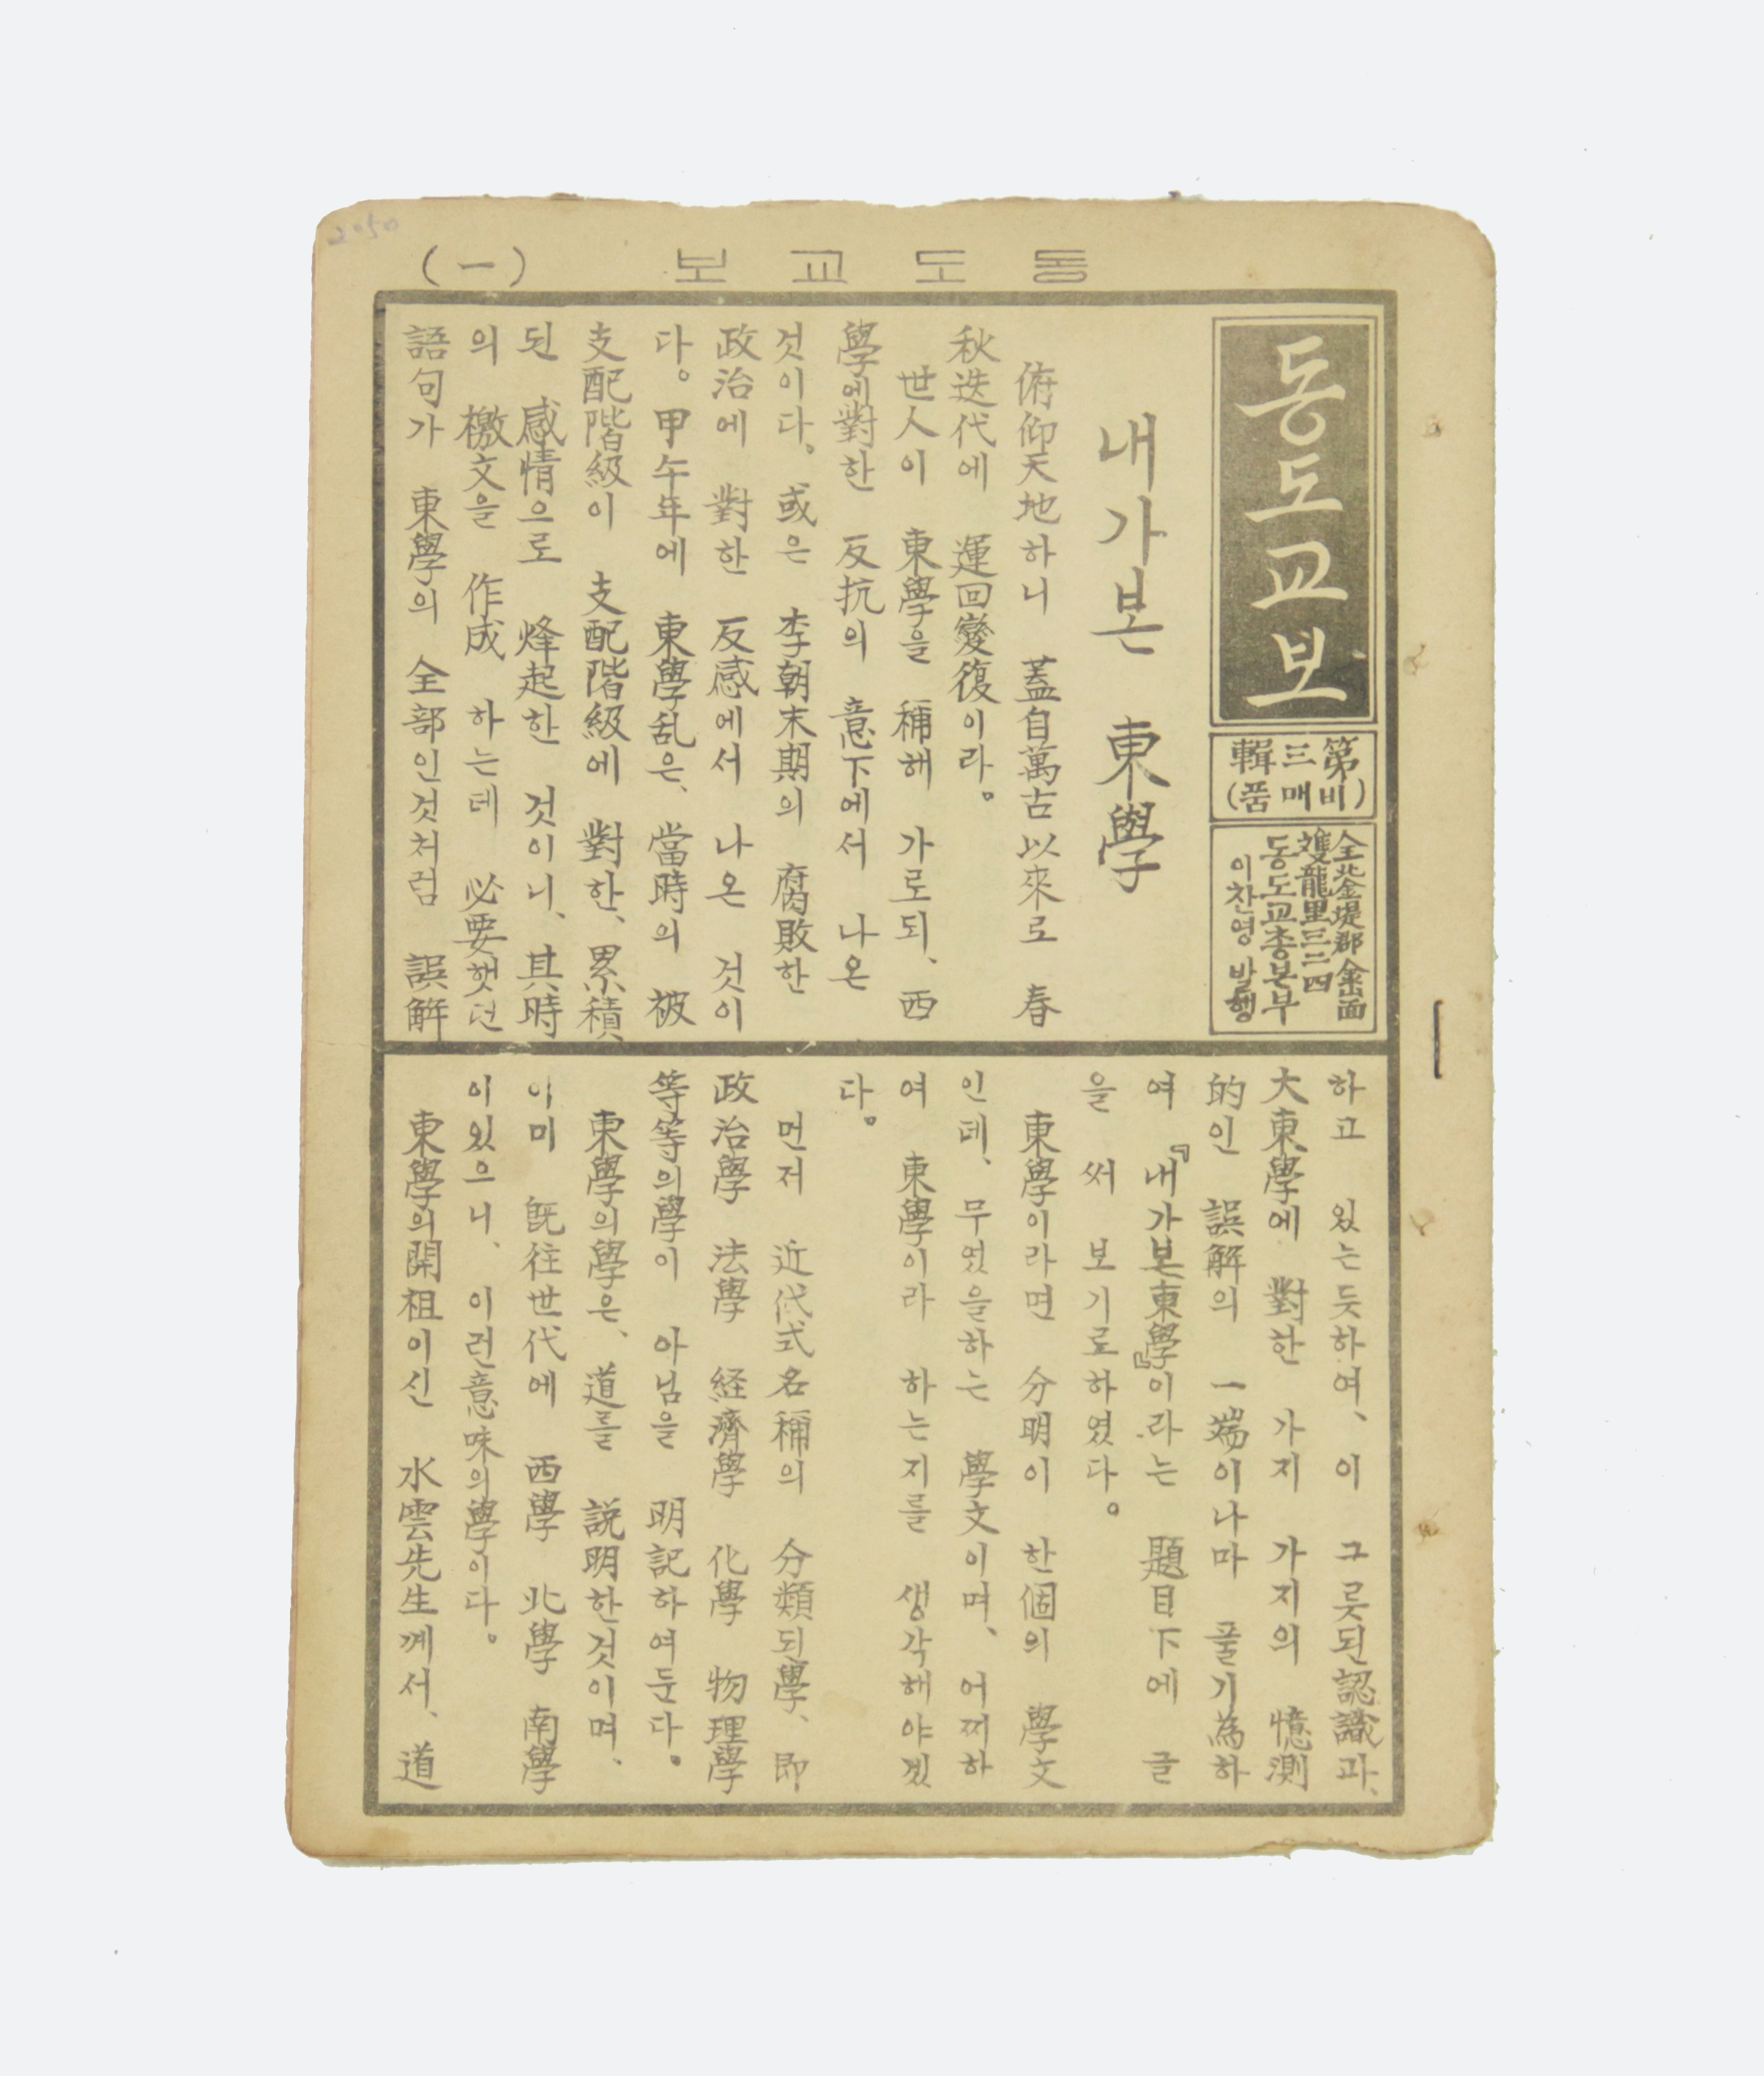 2050
동도교보
(一)
동도교보
第三輯
(비매품)
全北金堤郡金山面
雙龍里三三四
동도교총본부
이찬영 발행
내가본 東學
俯仰天地하니 蓋自萬古以來로 春
秋迭代에 運回變復이라。
世人이 東學을 稱해 가로되、西
學에對한 反抗의 意下에서 나온
것이다。或은 李朝末期의 腐敗한
政治에 對한 反感에서 나온 것이
다。甲午年에 東學乱은、當時의 被
支配階級이 支配階級에 對한、累積
된 感情으로 烽起한 것이니、其時
의 檄文을 作成 하는데 必要햇던
語句가 東學의 全部인것처럼 誤解
하고 있는듯하여、이 그릇된認識과、
大東學에 對한 가지 가지의 憶測
的인 誤解의 一端이나마 풀기爲하
여 『내가본東學』이라는 題目下에 글
을 써 보기로하였다。
東學이라면 分明이 한個의 學文
인데、무었을하는 學文이며、어찌하
여 東學이라 하는지를 생각해야겠
다。
먼저 近代式名稱의 分類되學、即
政治學 法學 経濟學 化學 物理學
等等의學이 아님을 明記하여둔다。
東學의學은、道를 説明한것이며、
이미 旣往世代에 西學 北學 南學
이있으니、이런意味의學이다。
東學의開祖이신 水雲先生께서、道